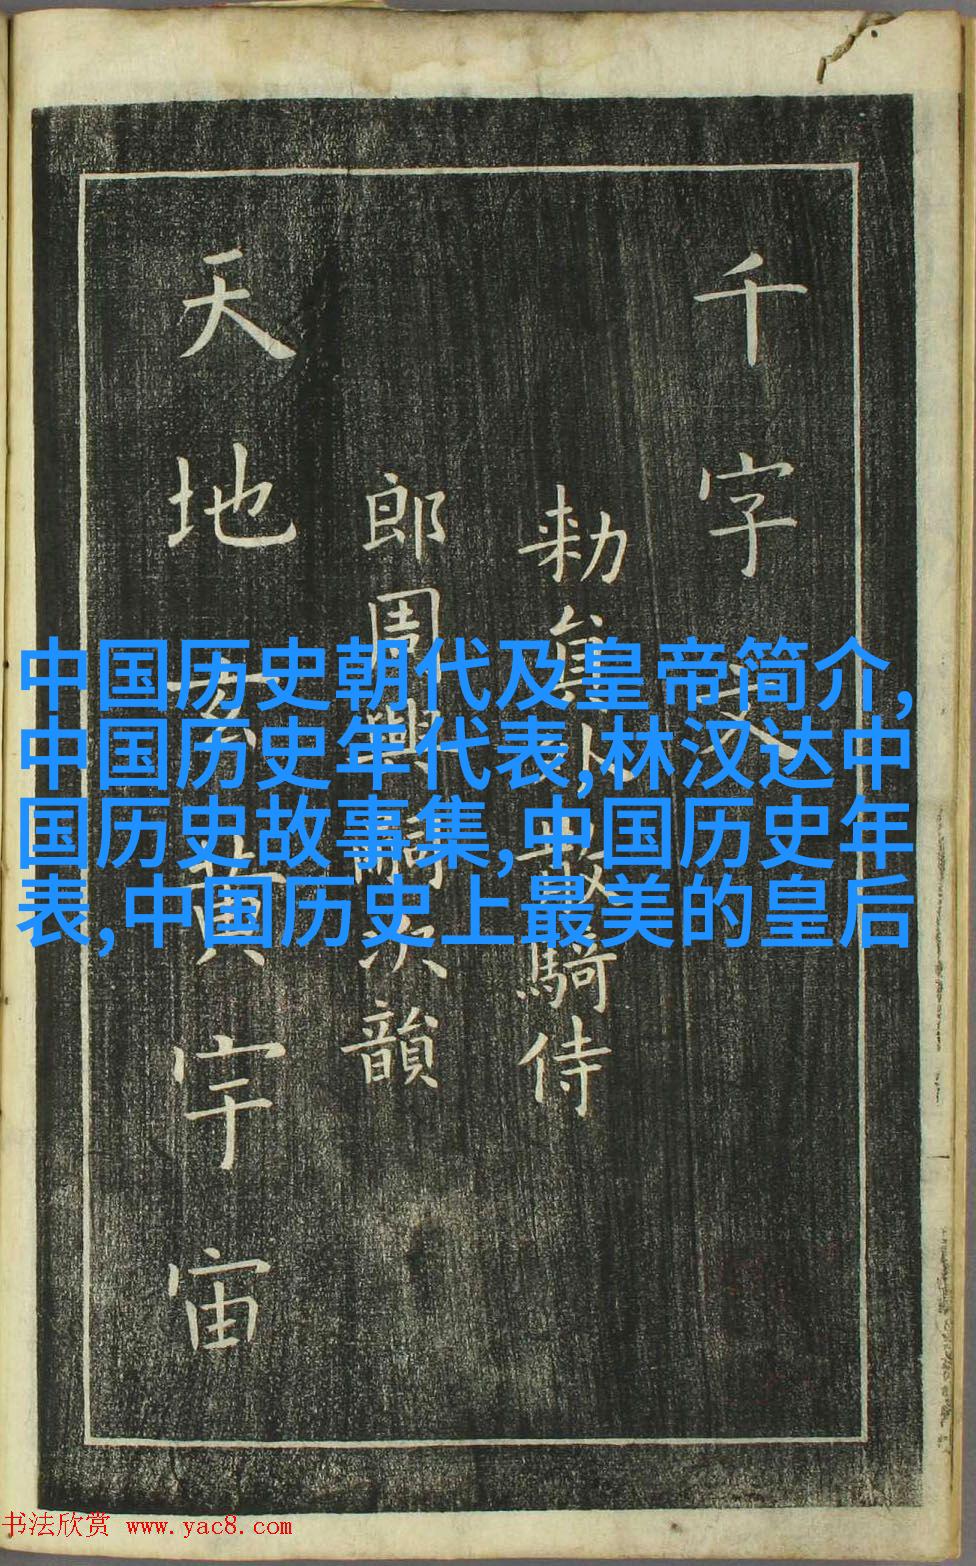 千字文
勑員外散騎侍
郎周興嗣次韻
天地玄黃宇宙
中国历史朝代及皇帝简介,
中国历史年代表,林汉达中
国历史故事集,中国历史年
表,中国历史上最美的皇后
书法欣赏 www.yac8.com